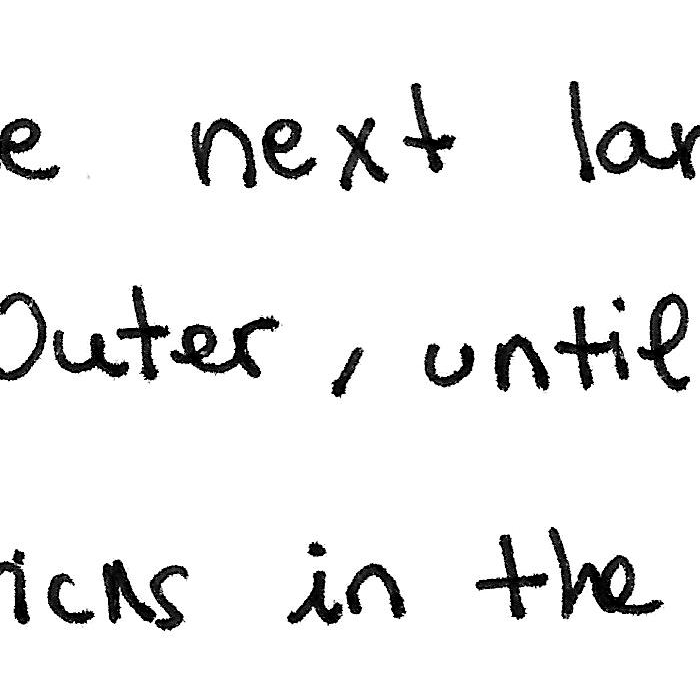 e next lar
Outer, until
ricks in the